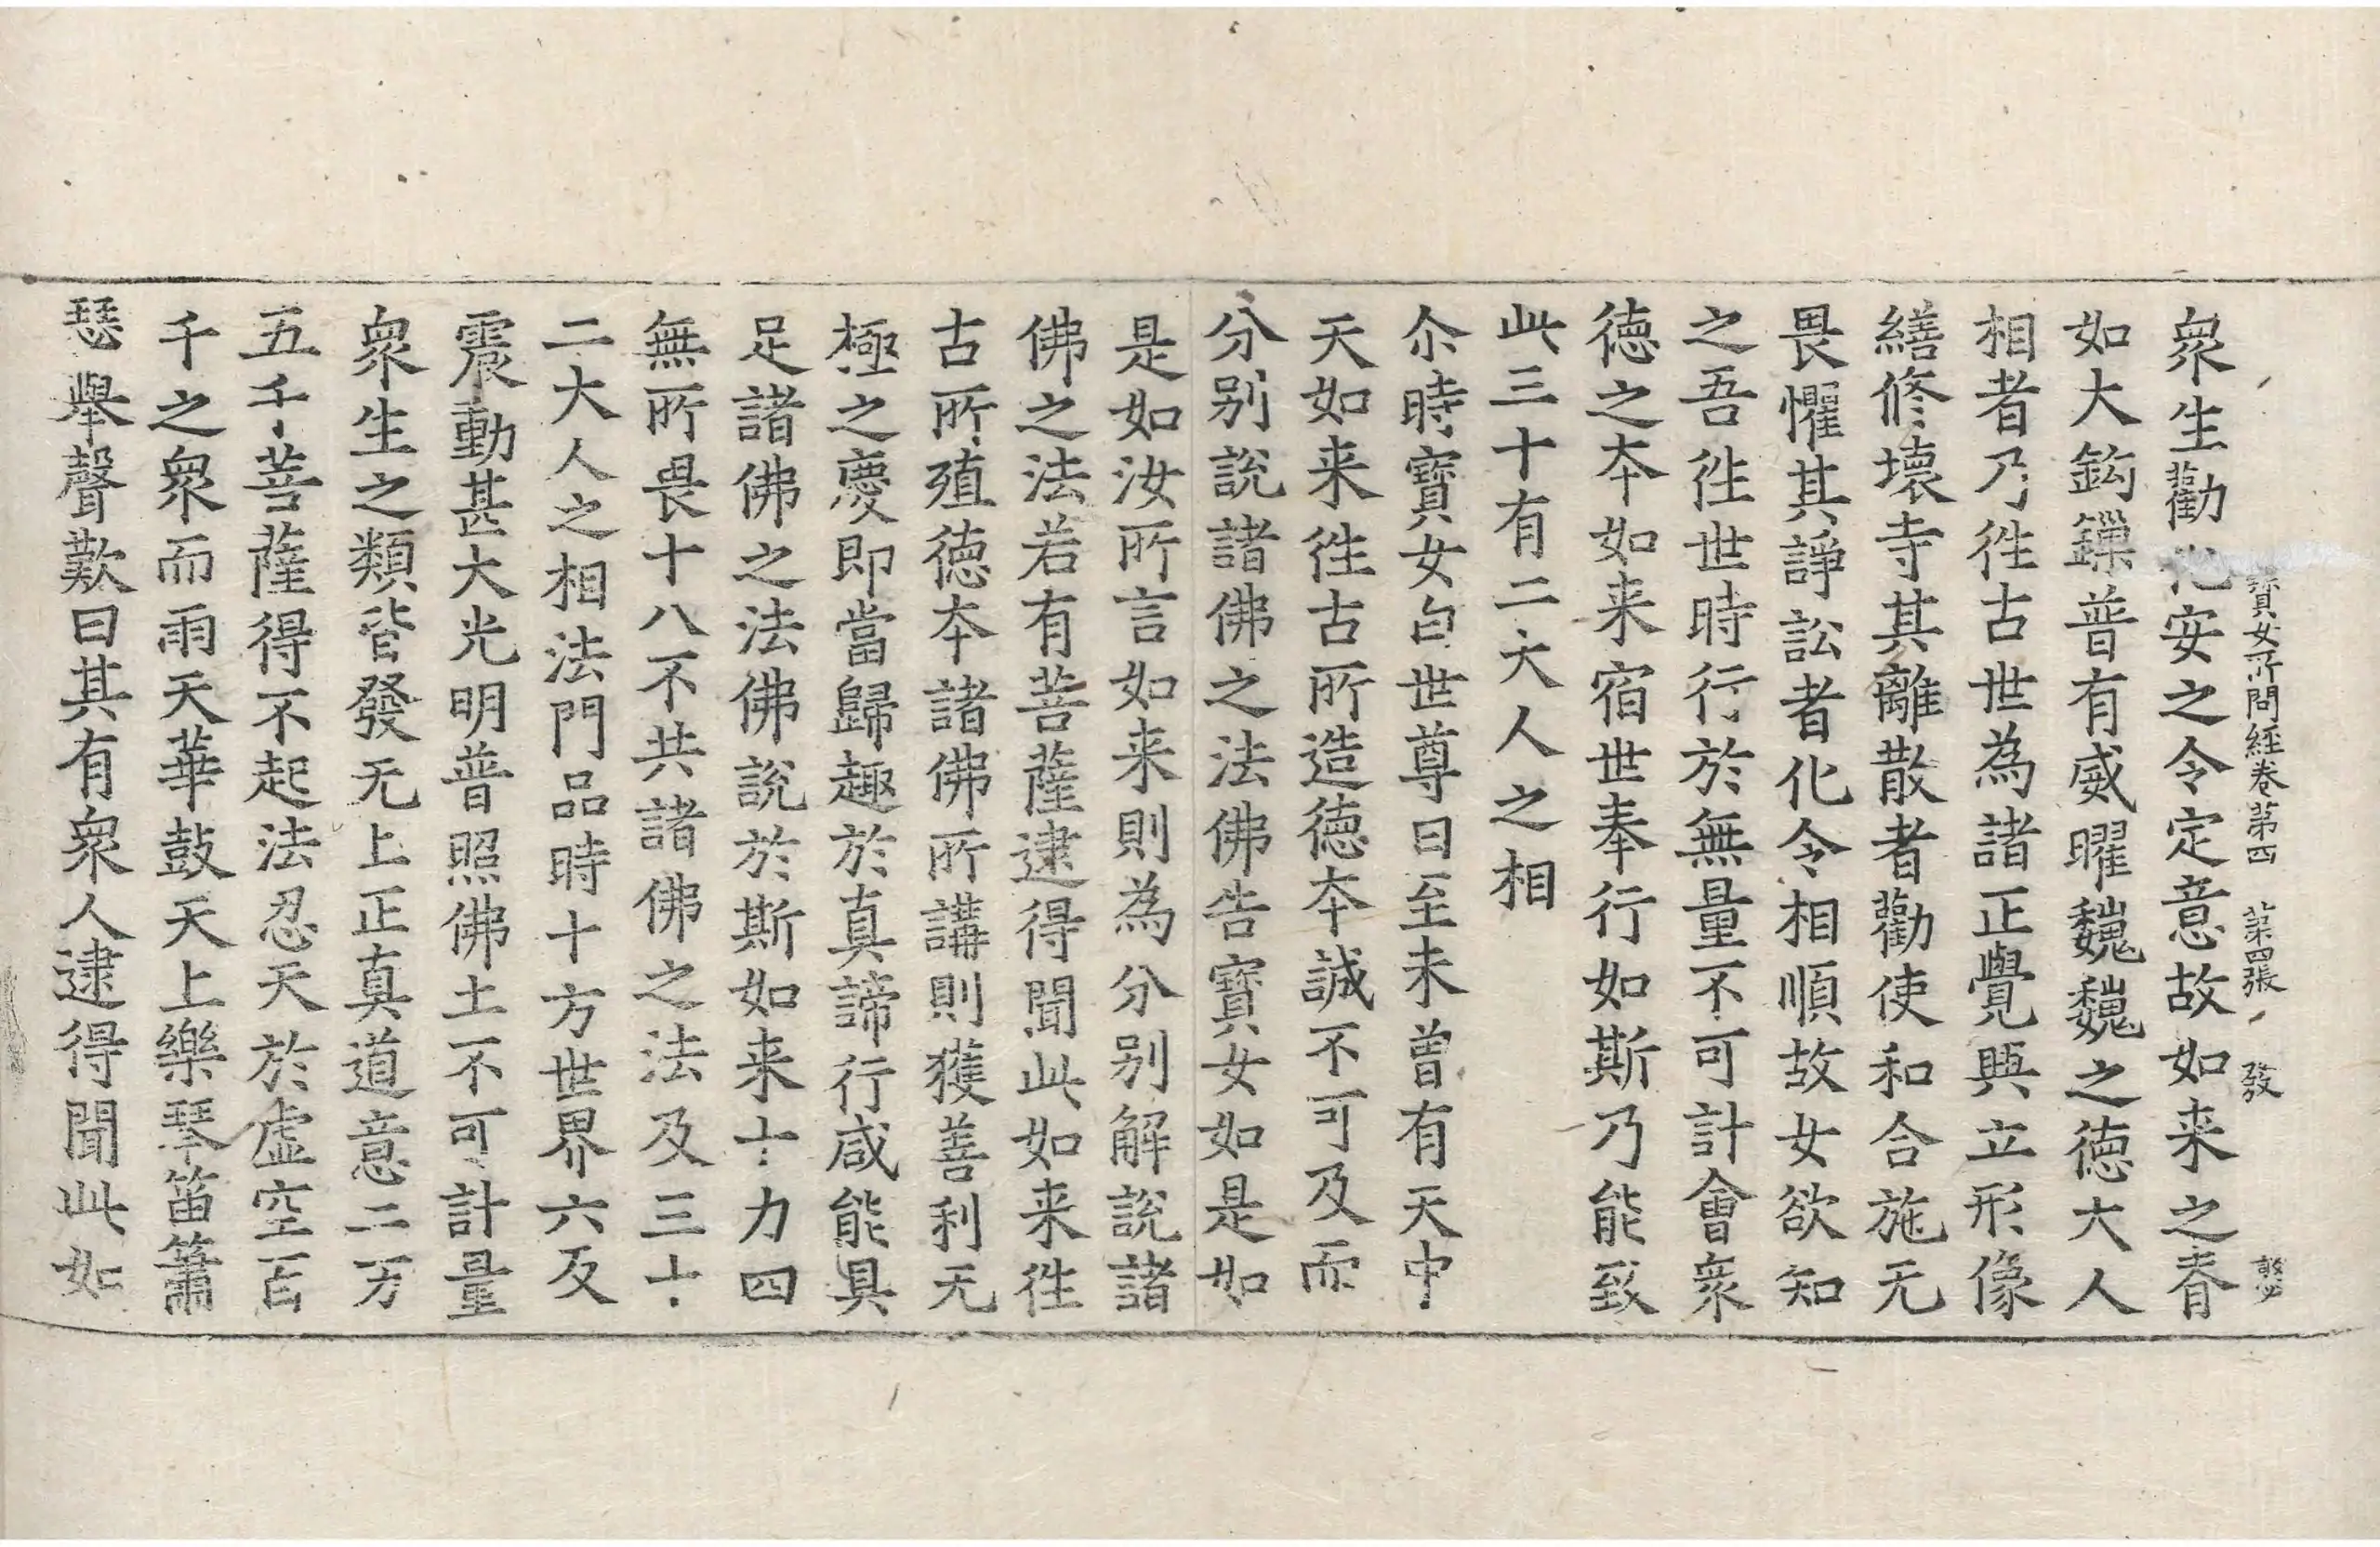 寶女所問經卷第四 第四張 發
衆生勸化安之令定意故如来之脊
如大鈎鏁普有威曜巍巍之德大人
相者乃徃古世為諸正覺興立形像
繕修壊寺其離散者勸使和合施无
畏懼其諍訟者化令相順故女欲知
之吾徃世時行於無量不可計會衆
德之夲如来宿世奉行如斯乃能致
此三十有二大人之相
尒時寶女白世尊曰至未曽有天中
天如来徃古所造德夲誠不可及而
分别說諸佛之法佛告寶女如是如
是如汝所言如来則為分别解說諸
佛之法若有菩薩逮得聞此如来徃
古所殖德夲諸佛所講則獲善利无
極之慶即當歸趣於真諦行咸能具
足諸佛之法佛說於斯如来十力四
無所畏十八不共諸佛之法及三十
二大人之相法門品時十方世界六反
震動甚大光明普照佛土不可計量
衆生之類皆發无上正真道意二万
五千菩薩得不起法忍天於虚空百
千之衆而雨天華鼓天上樂琴笛簫
瑟舉聲歎曰其有衆人逮得聞此如